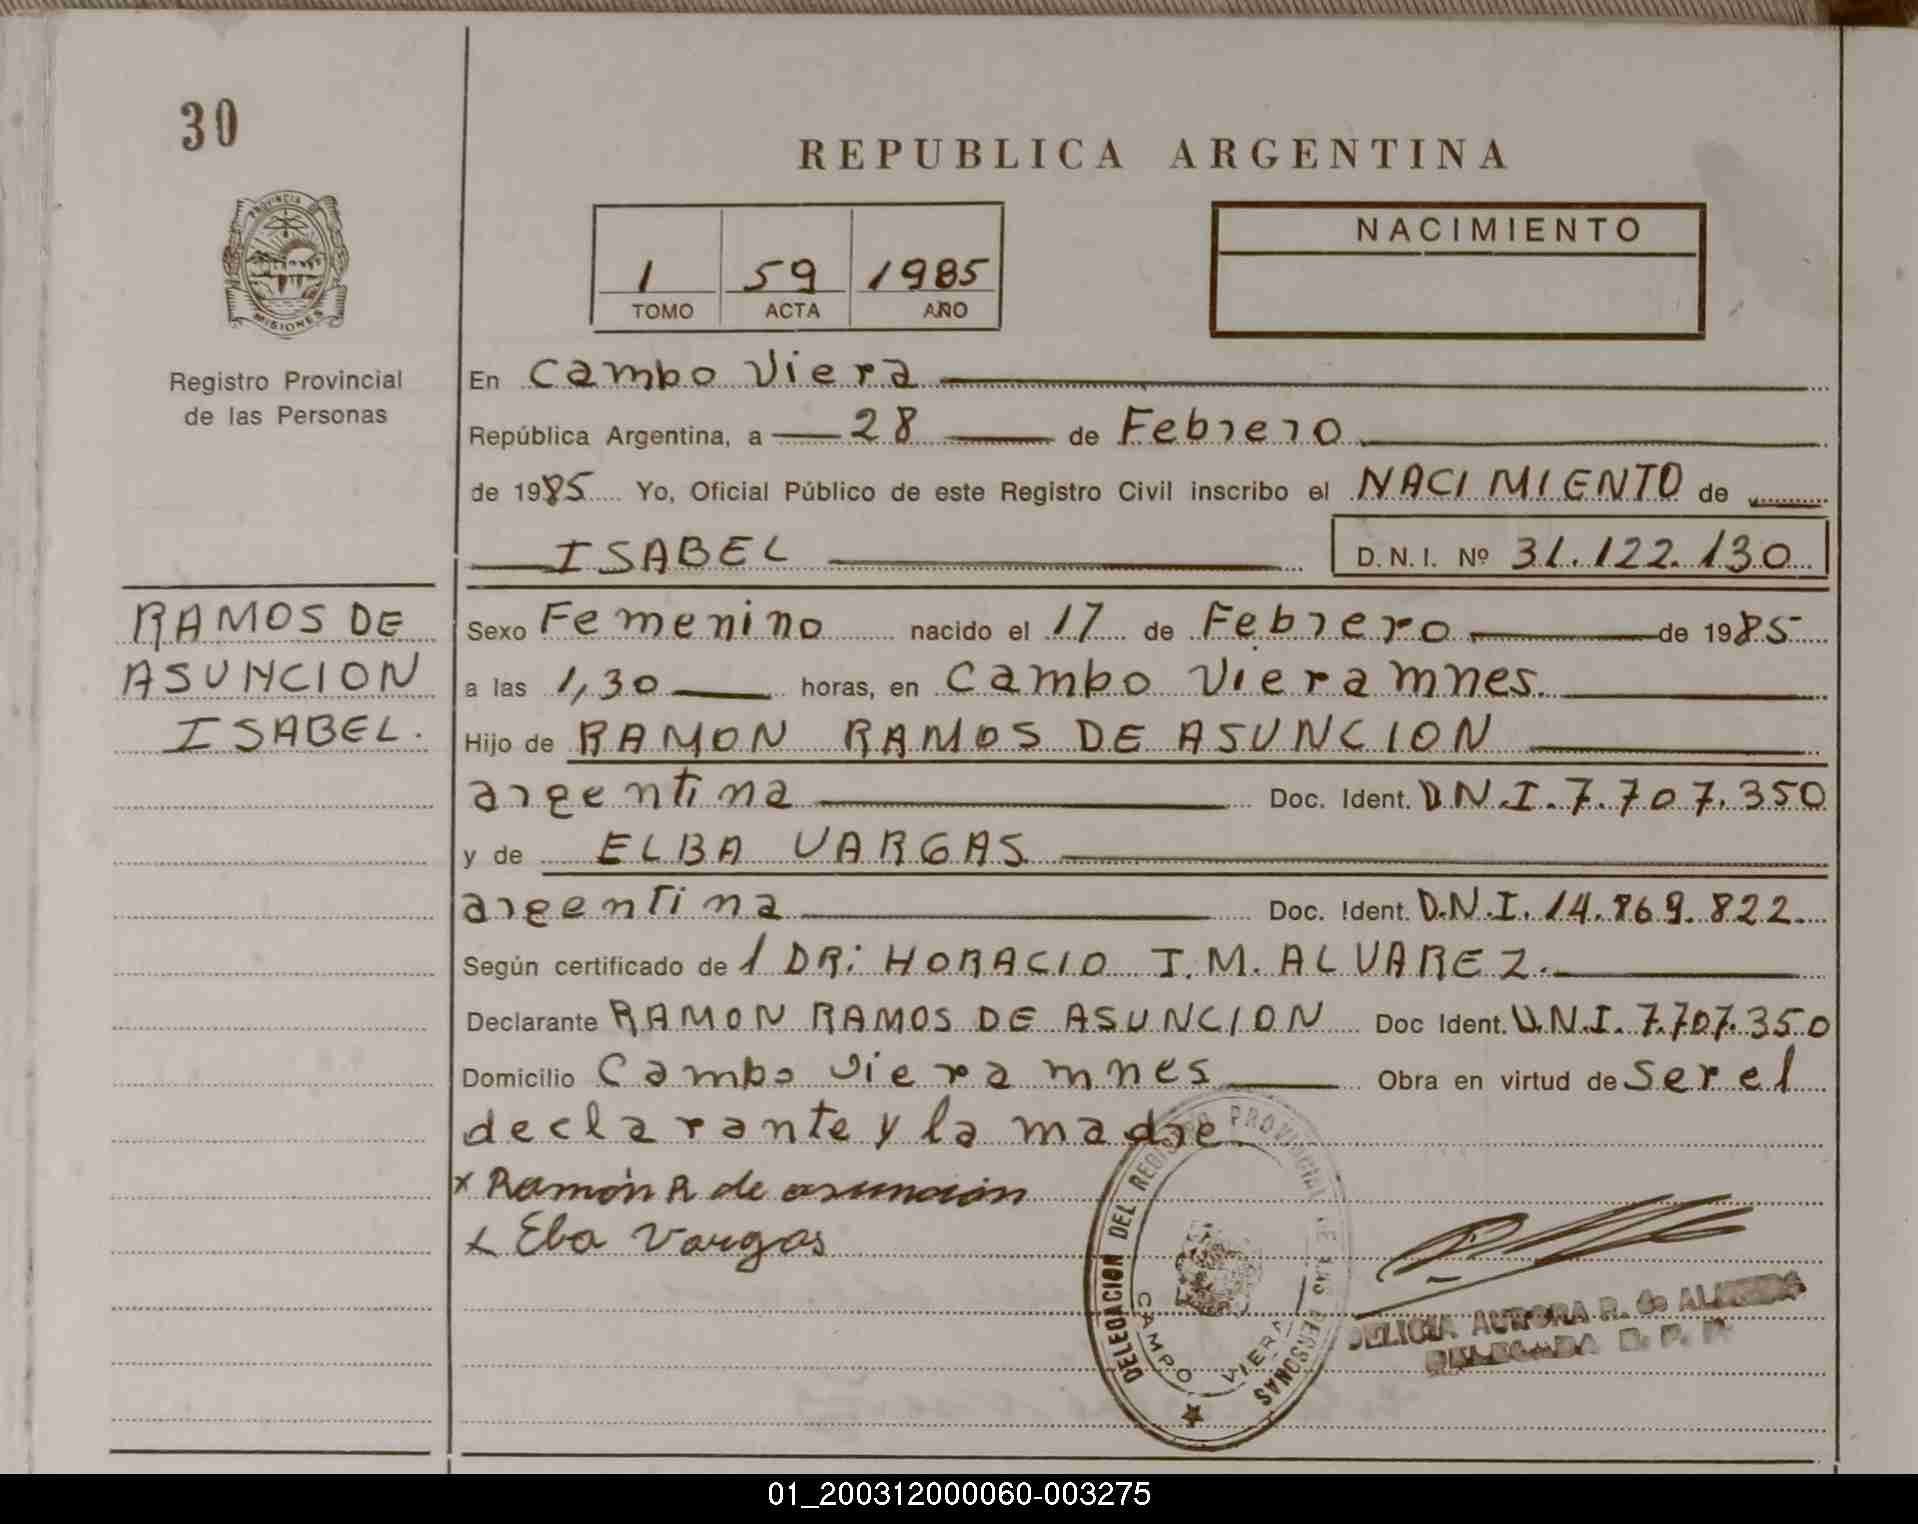 30
REPUBLICA ARGENTINA
PROVINCIA DE
MISIONES
NACIMIENTO
1 59 1985
TOMO ACTA AÑO
Registro Provincial
de las Personas
En Cambo Viera
República Argentina, a 28 de Febrero
de 1985 Yo, Oficial Público de este Registro Civil inscribo el NACIMIENTO de
ISABEL D.N.I. Nº 31.122.130
RAMOS DE
ASUNCION
ISABEL.
Sexo Femenino nacido el 17 de Febrero de 1985
a las 1,30 horas, en Cambo Viera mnes.
Hijo de RAMON RAMOS DE ASUNCION
argentina Doc. Ident. D.N.I. 7.707.350
y de ELBA VARGAS
argentina Doc. Ident. D.N.I. 14.869.822
Según certificado de l DR: HORACIO I.M. ALVAREZ.
Declarante RAMON RAMOS DE ASUNCION Doc Ident. D.N.I. 7.707.350
Domicilio Cambo Viera mnes Obra en virtud de ser el
declarante y la madre
x Ramón R de asunción
x Elba Vargas
DELEGACION DEL REGISTRO PROVINCIAL DE LAS PERSONAS
CAMPO VIERA
DELICIA AURORA R. de ALMEIDA
DELEGADA R. P. P.
01_200312000060-003275